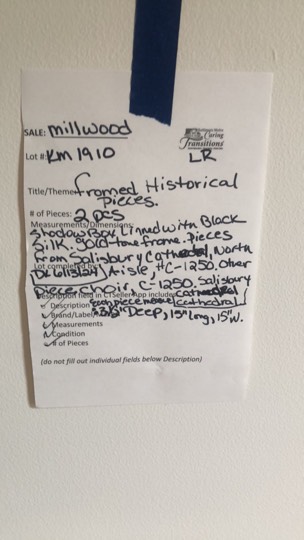 SALE: millwood
Caring
Transitions
Lot #: KM 1910
LR
Title/Theme: framed Historical
Pieces.
# of Pieces: 2 pcs
Measurements/Dimensions:
Shadow Box Linned with Black
Silk. gold-tone frame. pieces
from Salisbury Cathedral, North
Lot completed by
Aisle, #C-1250, Other
piece choir, C-1250, Salisbury
Description field in CTSeller App includes: Cathedral
Description each piece
Cathedral
Brand/Label 3/2" Deep, 15" Long, 15" W.
Measurements
Condition
# of Pieces
(do not fill out individual fields below Description)